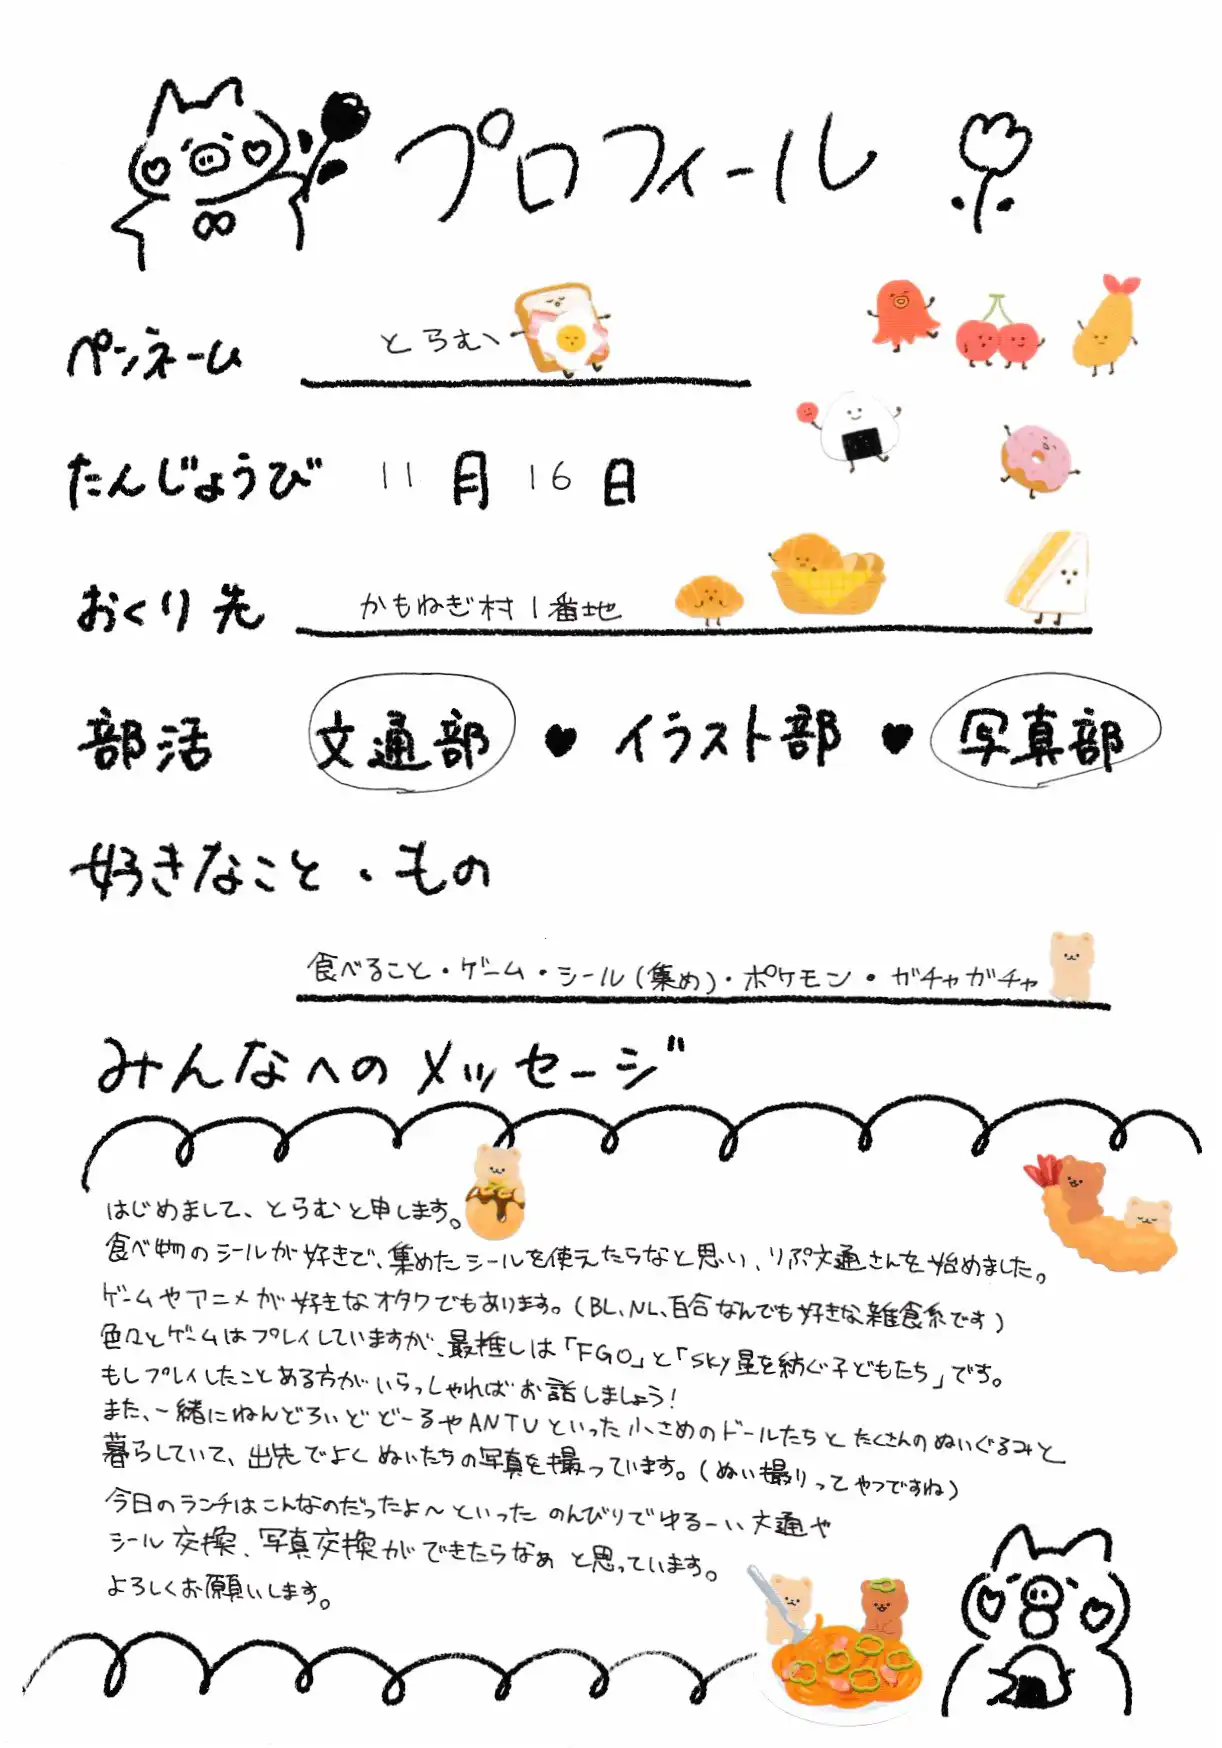 プロフィール
ペンネーム とらむ
たんじょうび 11月16日
おくり先 かもねぎ村1番地
部活 文通部 ♥ イラスト部 ♥ 写真部
好きなこと・もの
食べること・ゲーム・シール(集め)・ポケモン・ガチャガチャ
みんなへのメッセージ
はじめまして、とらむと申します。
食べ物のシールが好きで、集めたシールを使えたらなと思い、りぷ文通さんを始めました。
ゲームやアニメが好きなオタクでもあります。(BL、NL、百合なんでも好きな雑食系です)
色々とゲームはプレイしていますが、最推しは「FGO」と「sky星を紡ぐ子どもたち」です。
もしプレイしたことある方がいらっしゃればお話しましょう!
また、一緒にねんどろいどどーるやANTUといった小さめのドールたちとたくさんのぬいぐるみと
暮らしていて、出先でよくぬいたちの写真を撮っています。(ぬい撮りってやつですね)
今日のランチはこんなのだったよ〜といったのんびりでゆるーい文通や
シール交換、写真交換ができたらなぁと思っています。
よろしくお願いします。